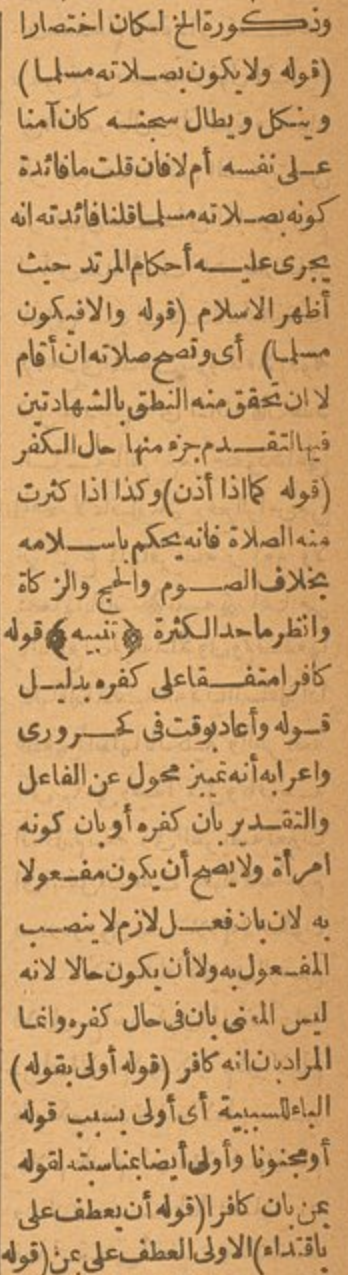 وذكورة الخ لكان اختصارا
(قوله ولا يكون بصلاته مسلما)
وينكل ويطال سجنه كان آمنا
على نفسه أم لا فان قلت ما فائدة
كونه بصلاته مسلما قلنا فائدته انه
يجرى عليه أحكام المرتد حيث
أظهر الاسلام (قوله والا فيكون
مسلما) أى وتصح صلاته ان أقام
لا ان تحقق منه النطق بالشهادتين
فيها لتقدم جزء منها حال الكفر
(قوله كما اذا أذن) وكذا اذا كثرت
منه الصلاة فانه يحكم باسلامه
بخلاف الصوم والحج والزكاة
وانظر ما حد الكثرة ﴿تنبيه﴾ قوله
كافرا متفقا على كفره بدليل
قوله وأعاد بوقت فى كحرورى
واعرابه أنه تمييز محول عن الفاعل
والتقدير بان كفره أو بان كونه
امرأة ولا يصح أن يكون مفعولا
به لان بان فعل لازم لا ينصب
المفعول به ولا أن يكون حالا لانه
ليس المعنى بان فى حال كفره وانما
المراد بان انه كافر (قوله أولى بقوله)
الباء للسببية أى أولى بسبب قوله
أو مجنونا وأولى أيضا بمناسبته لقوله
بمن بان كافرا (قوله أن يعطف على
باقتداء) الاولى العطف على بمن (قوله